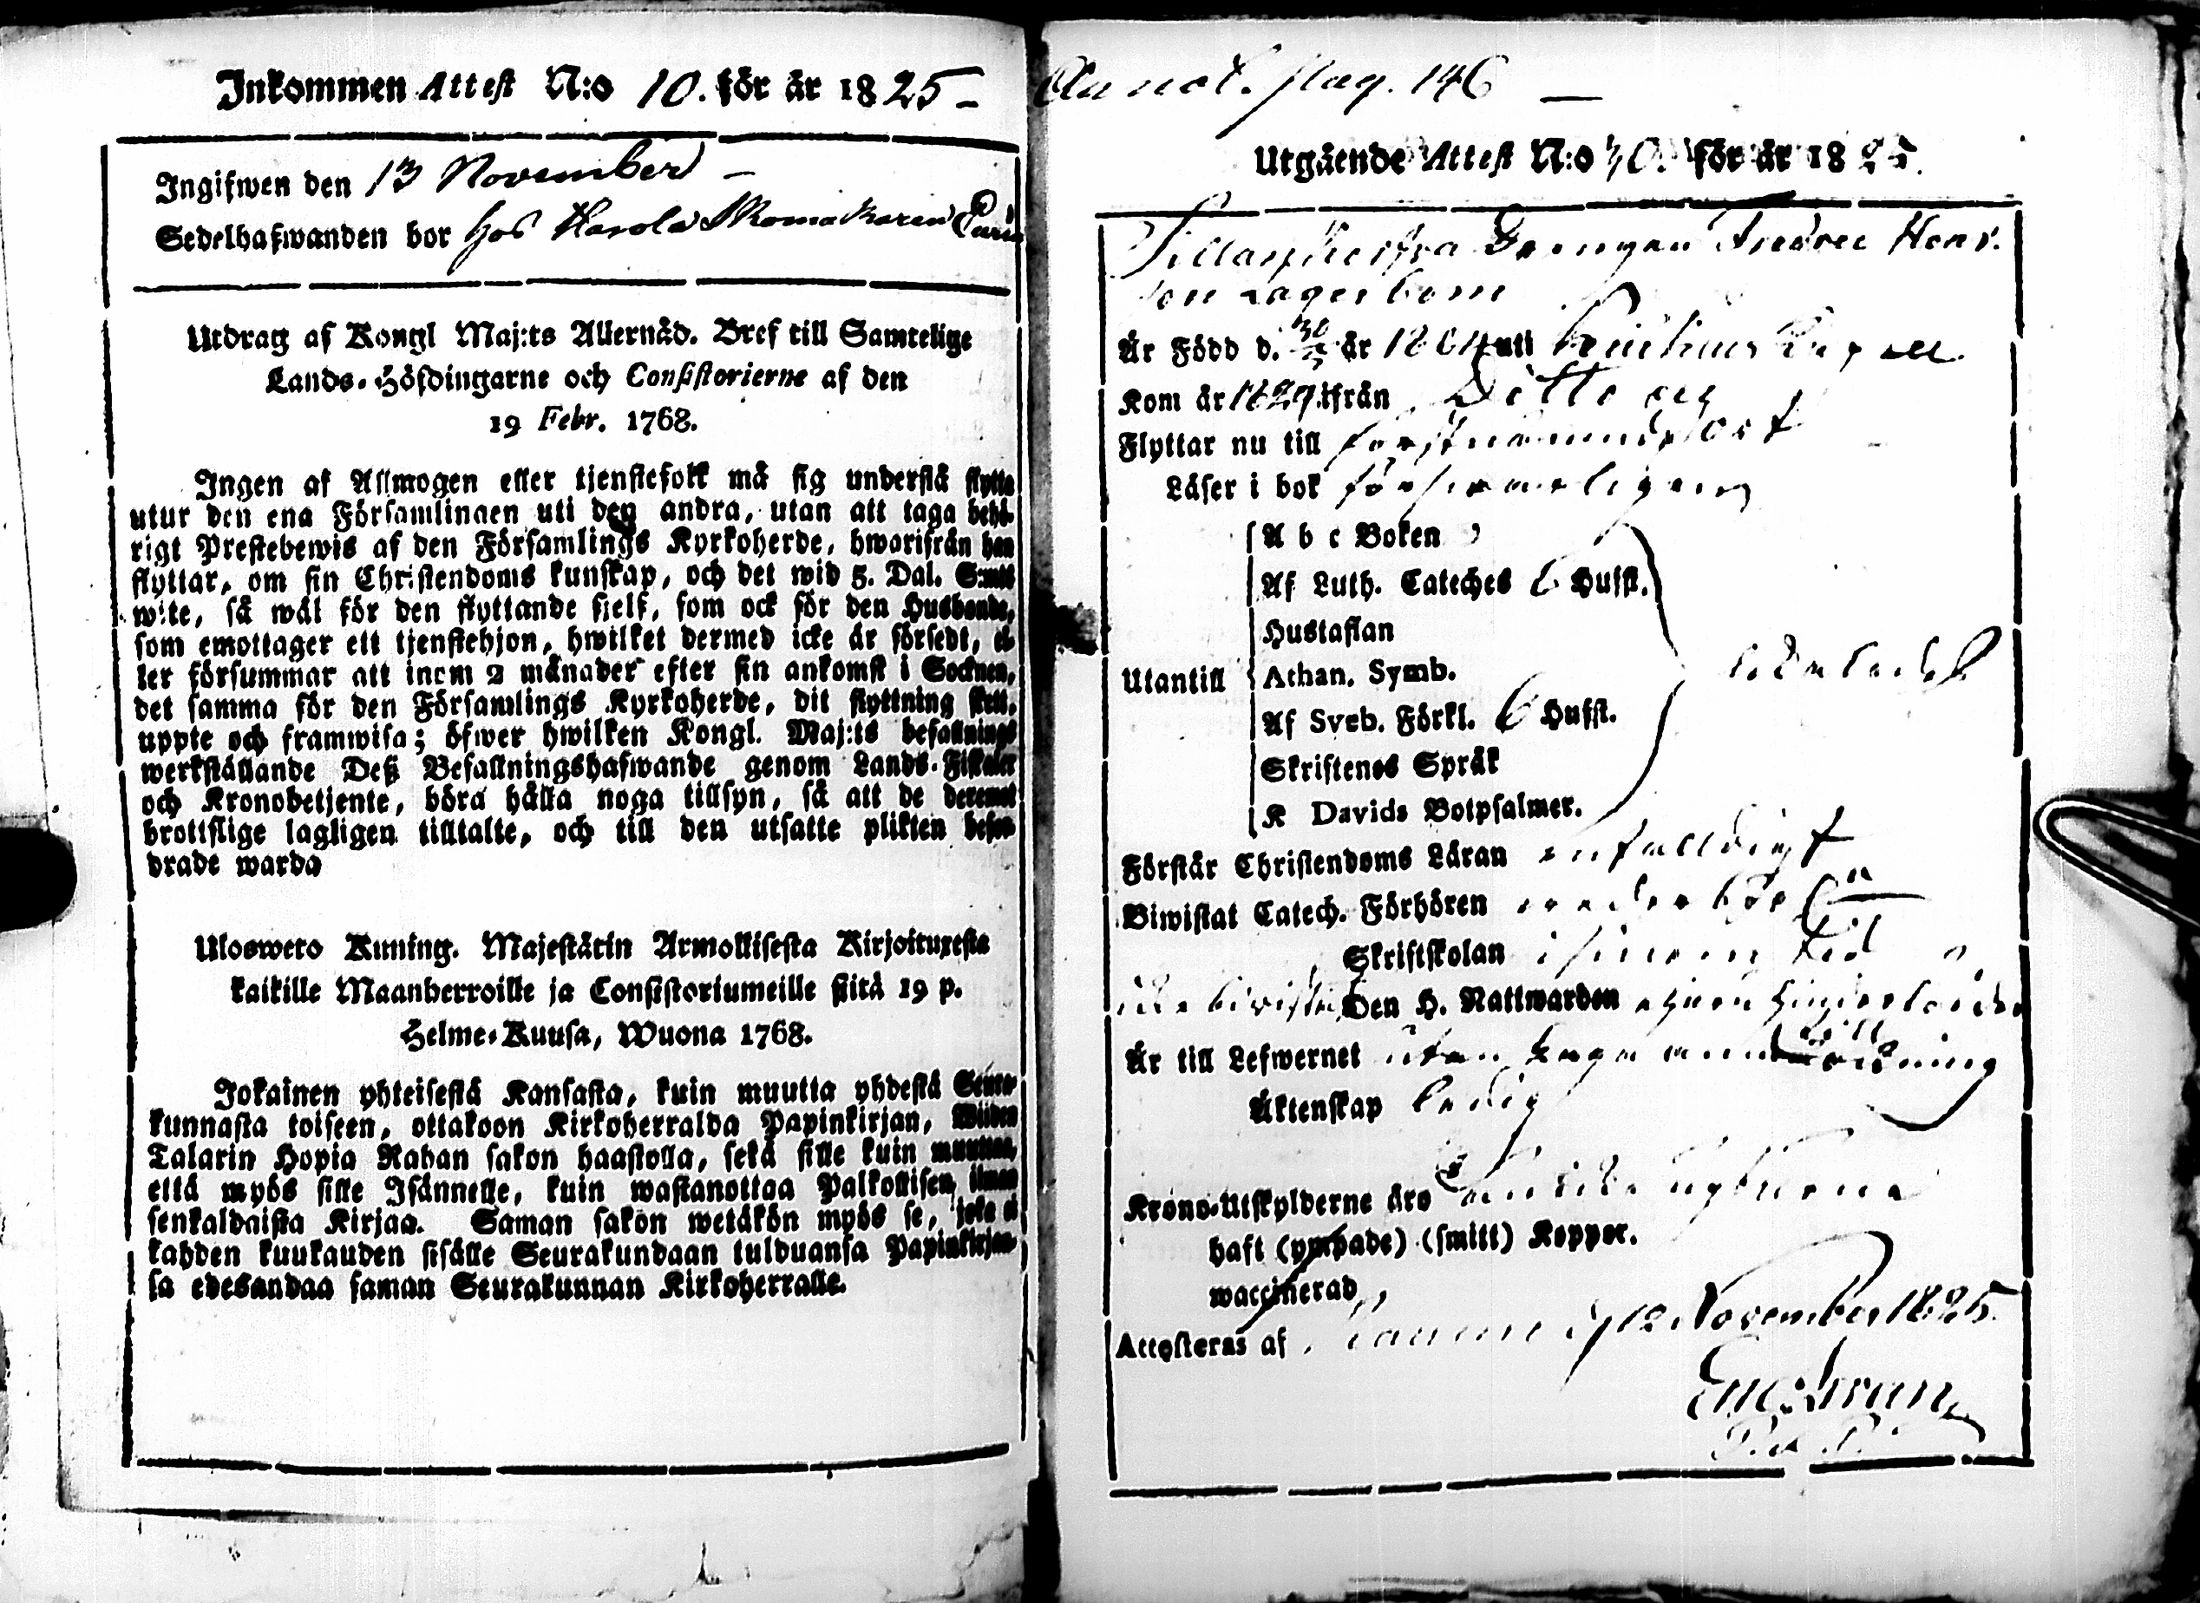 Inkommen Attest N:o 10. för år 1825 -
Ingifwen den 13 November -
Sedelhafwanden bor hos Harola Skomakaren
Utdrag af Kongl Maj:ts Allernåd. Bref till Samtelige
Lands-Höfdingarne och Consistorierne af den
19 Febr. 1768.
Ingen af Allmogen eller tjenstefolk må sig understå flytta
utur den ena Församlingen uti den andra, utan att taga behö-
rigt Prestebewis af den Församlings Kyrkoherde, hwarifrån han
flyttar, om sin Christendoms kunskap, och det wid 5. Dal. S:mts
wite, så wäl för den flyttande sjelf, som ock för den Husbonde,
som emottager ett tjenstehjon, hwilket dermed icke är försedt, el-
ler försummar att inom 2 månader efter sin ankomst i Socknen,
det samma för den Församlings Kyrkoherde, dit flyttning skett,
uppte och framwisa; öfwer hwilken Kongl. Maj:ts befallnings
werkställande Deß Befallningshafwande genom Lands-Fiskaler
och Kronobetjente, böra hålla noga tillsyn, så att de deremot
brottslige lagligen tilltalte, och till den utsatte plikten befor-
drade warda
Uloswero Kuning. Majestätin Armollisesta Kirjoituxesta
kaikille Maanherroille ja Consistoriumeille siitä 19 p.
Helme-Kuusa, Wuona 1768.
Jokainen yhteisestä Kansasta, kuin muutta yhdestä Seura-
kunnasta toiseen, ottakoon Kirkoherralda Papinkirjan, Wiiden
Talarin Hopia Rahan sakon haastolla, sekä sille kuin muuttaa,
että myös sille Isännelle, kuin wastanottaa Palkollisen, ilman
senkaldaista Kirjaa. Saman sakon wetäkön myös se, joka ei
kahden kuukauden sisälle Seurakundaan tulduansa Papinkirjan-
sa edesandaa saman Seurakunnan Kirkoherralle.
Annot. pag. 146 —
Utgående Attest N:o 30. för år 1825.
Drengen Andree Henr.
son Lagerbom
Är Född d. år 1804 uti Capell
Kom år 182 ifrån Ditto och
Flyttar nu till förstnämnde ort
Läser i bok försvarligen
A b c Boken
Af Luth. Cateches 6 Hufst.
Hustaflan
Utantill Athan. Symb. likaledes
Af Sveb. Förkl. 6 Hufst.
Skriftenes Språk
K Davids Botpsalmer.
Förstår Christendoms Läran enfalldigt
Biwistat Catech. Förhören
Skriftskolan i sinom tid
icke bivistat Den H. Nattwarden egen
Är till Lefwernet utan laga
Äktenskap ledig
Krono-Utskylderne äro
haft (ympade) (smitt) Koppor.
waccinerad
Attesteras af, d. 12 November 1825.